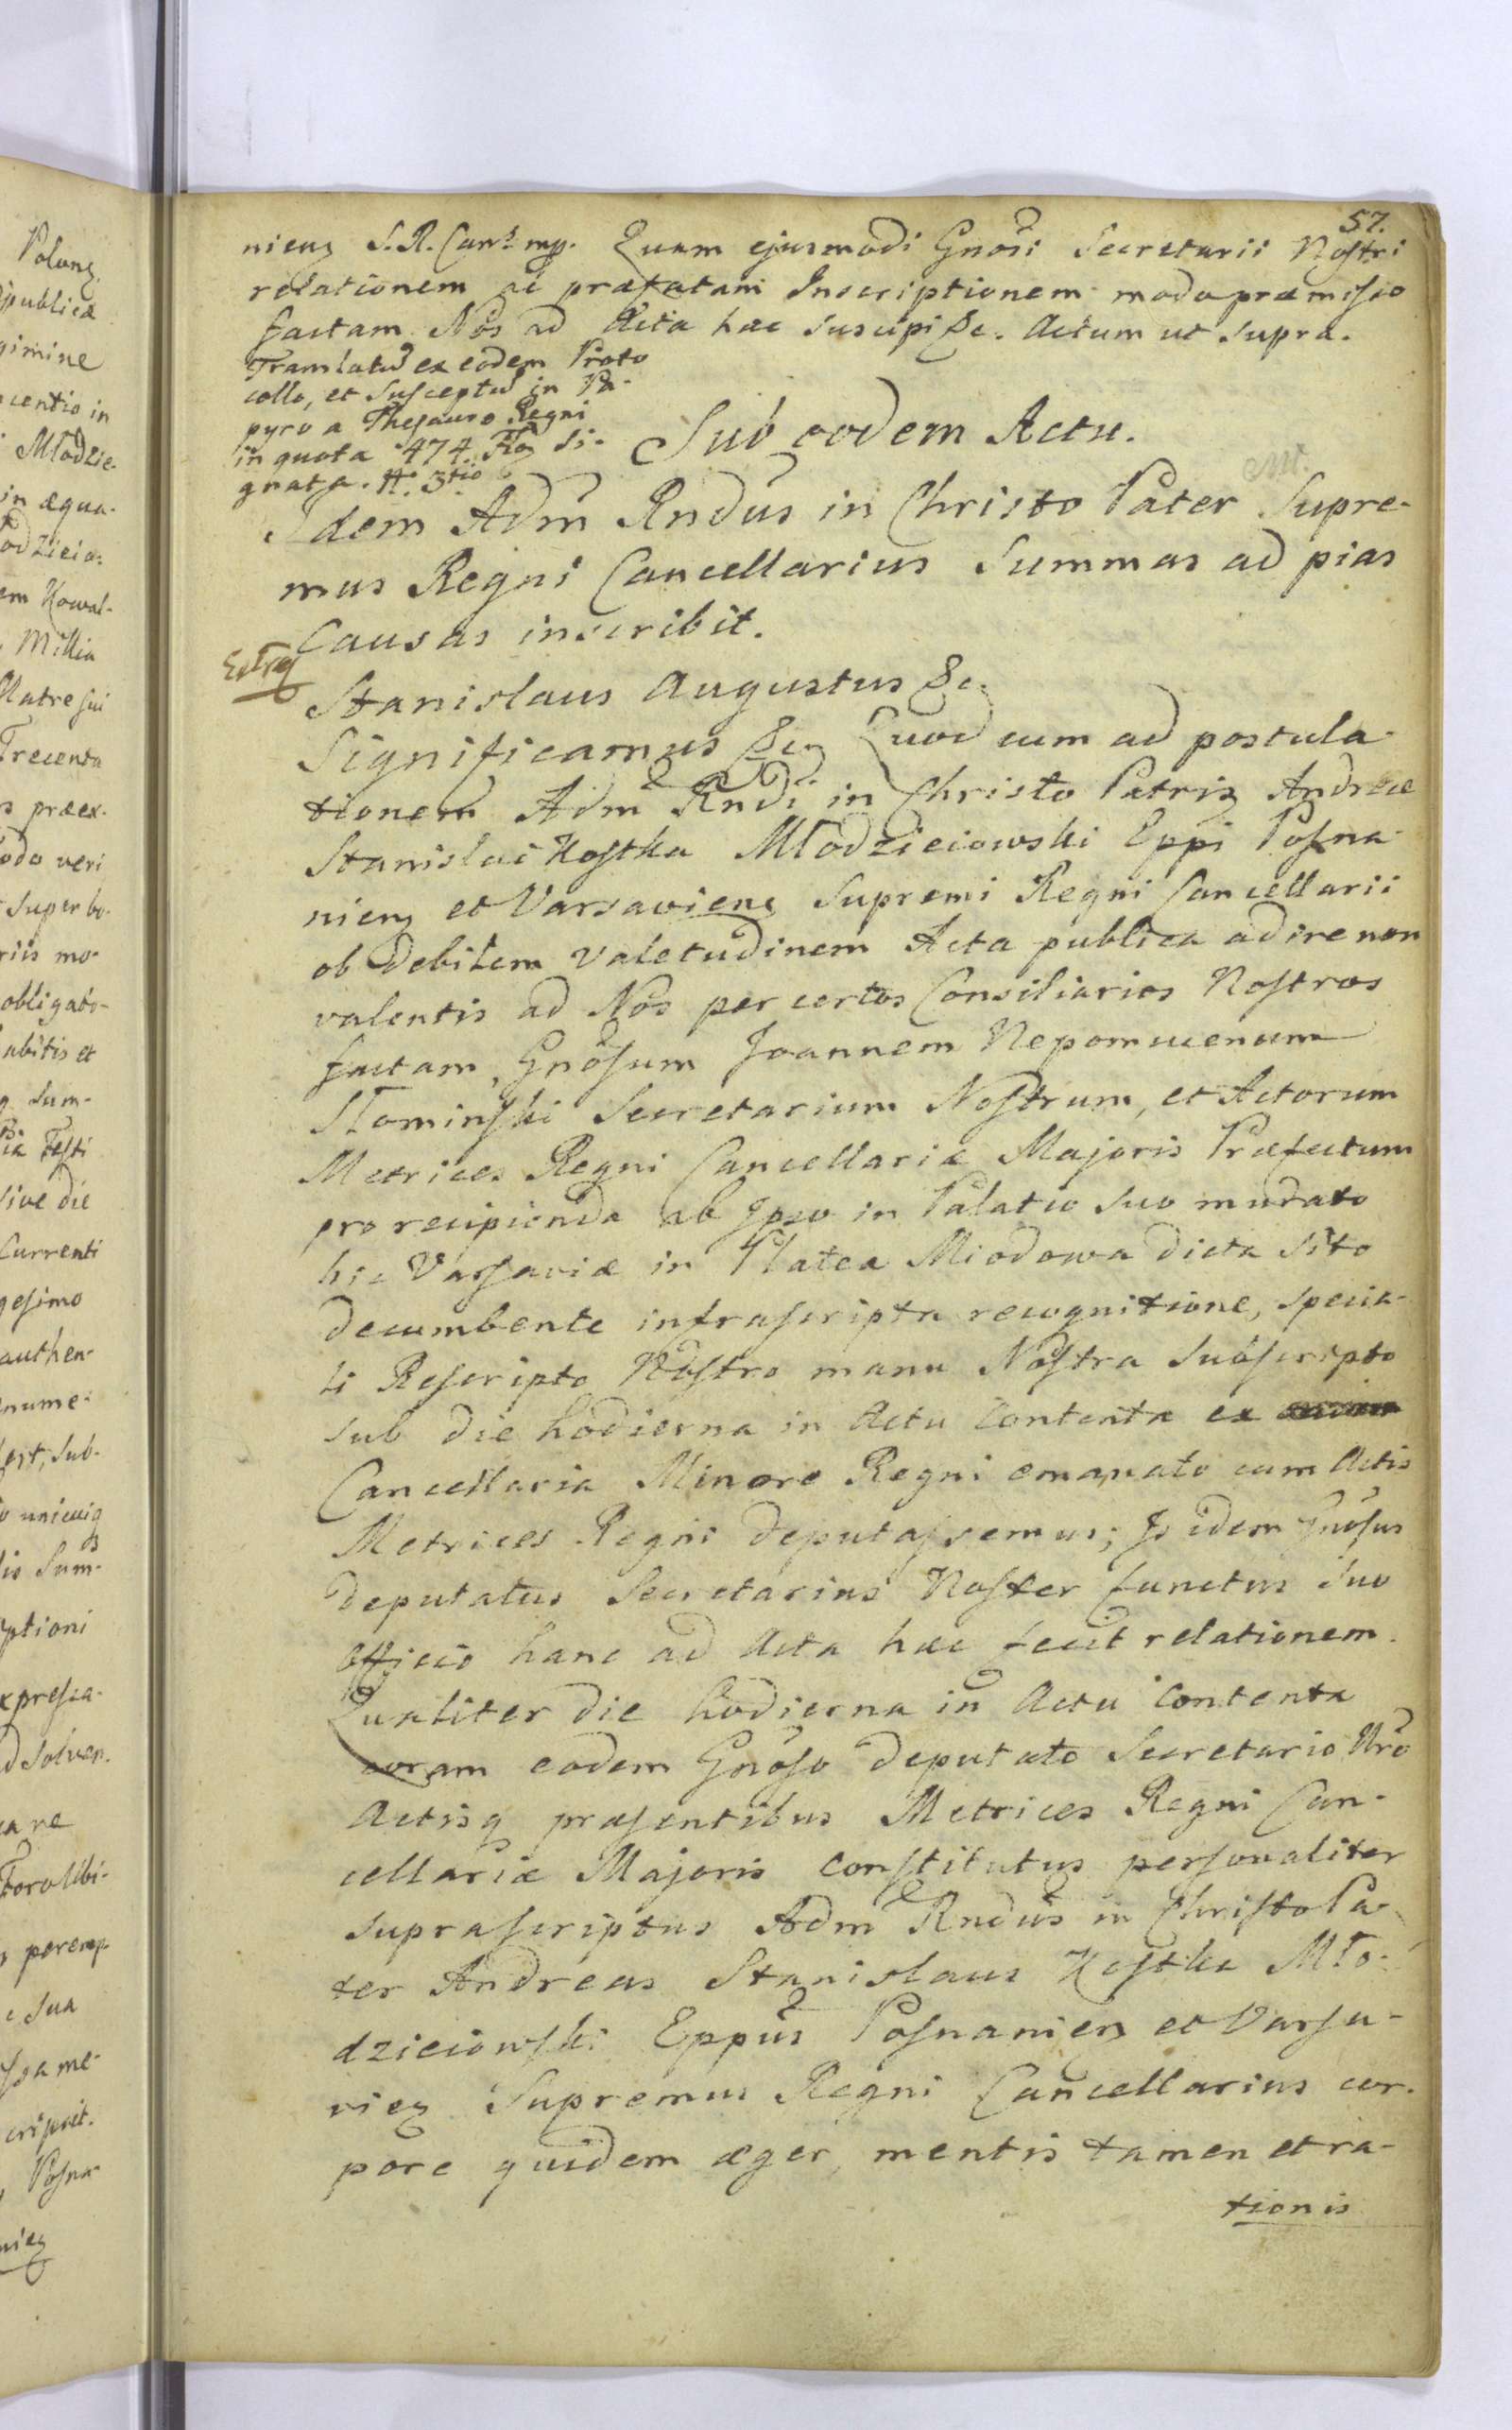 57.
nieng S. R. Canc mp. Quam ejusmodi Gnosi Secretarii Nostri
relationem ac præfatam Inscriptionem modo præmisso
factam Nos ad Acta hæc suscepi &c. Actum ut supra.
Translatū ex eodem Proto
collo, et Susceptū in Pa-
pyro a Thesauro Regni
in quota 474. si-
gnata. 3tio
Sub eodem Actu.
Idem Adm Rndus in Christo Pater Supre-
mus Regni Cancellarius Summas ad pias
Causas inscribit.
Stanislaus Augustus &c.
Significamus &c. Quod cum ad postula-
tionem Adm Rndi in Christo Patris Andreæ
Stanislai Kostka Młodzieiowski Eppi Posna-
nieng et Varsavieng Supremi Regni Cancellarii
ob debilem valetudinem Acta publica adire non
valentis ad Nos per certos Consiliarios Nostros
factam, Gnosum Joannem Nepomucenum
Słominski Secretarium Nostrum, et Actorum
Metrices Regni Cancellariæ Majoris Præfectum
pro recipienda ab Ipso in Palatio suo murato
hic Varsaviæ in Platea Miodowa dicta sito
decumbente infrascripta recognitione, specia-
li Rescripto Nostro manu Nostra Subscripto
sub die hodierna in Actu contenta ex
Cancellaria Minore Regni emanato cum Actis
Metrices Regni deputassemus; Is idem Gnosus
deputatus Secretarius Noster functus suo
Officio hanc ad Acta hæc fecit relationem.
Qualiter die hodierna in Actu contenta
coram eodem Gnoso deputato Secretario Nro
Actisq præsentibus Metrices Regni Can-
cellariæ Majoris constitutus personaliter
suprascriptus Adm Rndus in Christo Pa-
ter Andreas Stanislaus Kostka Mło-
dzieiowski Eppus Posnanieng et Varsa-
vieng Supremus Regni Cancellarius cor-
pore quidem æger, mentis tamen et ra-
tionis
Polong
publicæ
gimine
centio in
Młodzie-
in æqua-
odzieio-
em Kowal-
Millia
Matre sui
Trecenta
s præex-
odo veri
super bo-
riis mo-
obligato-
abitis et
Sum-
ia Festi
sive die
Currenti
gesimo
authen-
nume-
est, sub-
unicuiq
is Sum-
ptioni
xpressa-
d solven-
are
Foro libi-
peremp-
sua
sa me-
cripsit.
Posna-
nieng